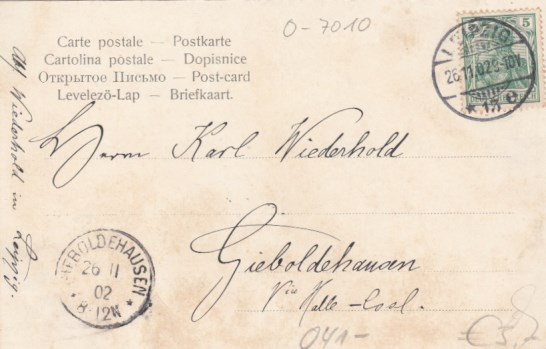 O-7010
Carte postale — Postkarte
Cartolina postale — Dopisnice
Открытое Письмо — Post-card
Levelezö-Lap — Briefkaart.
5
LEIPZIG
26.11.02.9-10V
* 13 e
Abs. Wiederhold in Leipzig.
Herrn Karl Wiederhold
Gieboldehausen
Via Halle-
GIEBOLDEHAUSEN
26 11
02
* 8-12N *
041-